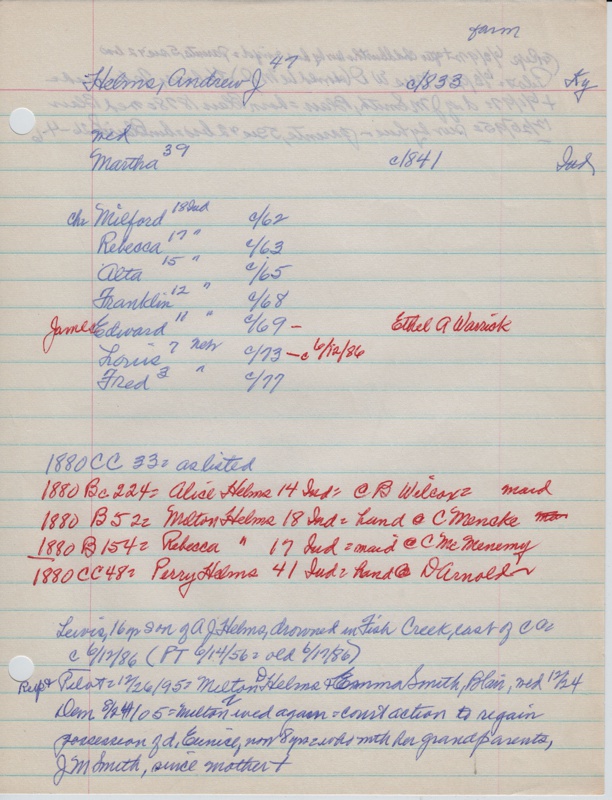 farm
Helms, Andrew J 47 c/833 Ky
wed
Martha 39 c/841 Ind
ch: Milford 18 Ind c/62
Rebecca 17 " c/63
Alta 15 " c/65
Franklin 12 " c/68
James Edward 11 " c/69 - Ethel A Warrick
Louis 7 Neb c/73 - c 6/12/86
Fred 3 " c/77
1880 CC 33 = as listed
1880 Bc 224 = Alice Helms 14 Ind = @ B Wilcox = maid
1880 B 52 = Milton Helms 18 Ind = hand @ C Mencke
1880 B 154 = Rebecca " 17 Ind = maid @ C McMenemy
1880 CC 48 = Perry Helms 41 Ind = hand @ D Arnold
Lewis, 16 yr son of A J Helms, drowned in Fish Creek, east of CO =
c 6/12/86 (PT 6/14/56 = old 6/17/86)
Rep + Pilot = 12/26/95 = Milton D Helms + Emma Smith, Blair, wed 12/24
Dem 8/24/05 = Milton wed again = court action to regain
possession of d, Eunice, now 8 yrs = who with her grandparents,
J M Smith, since mother +